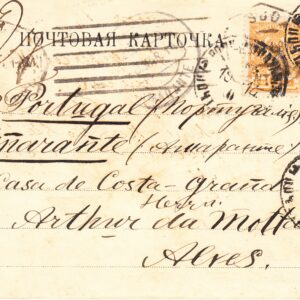 ПОЧТОВАЯ КАРТОЧКА
Portugal (Португалия)
Amarante (Амаранте)
Casa de Costa-Grande
Herrn
Arthur da Motta
Alves.